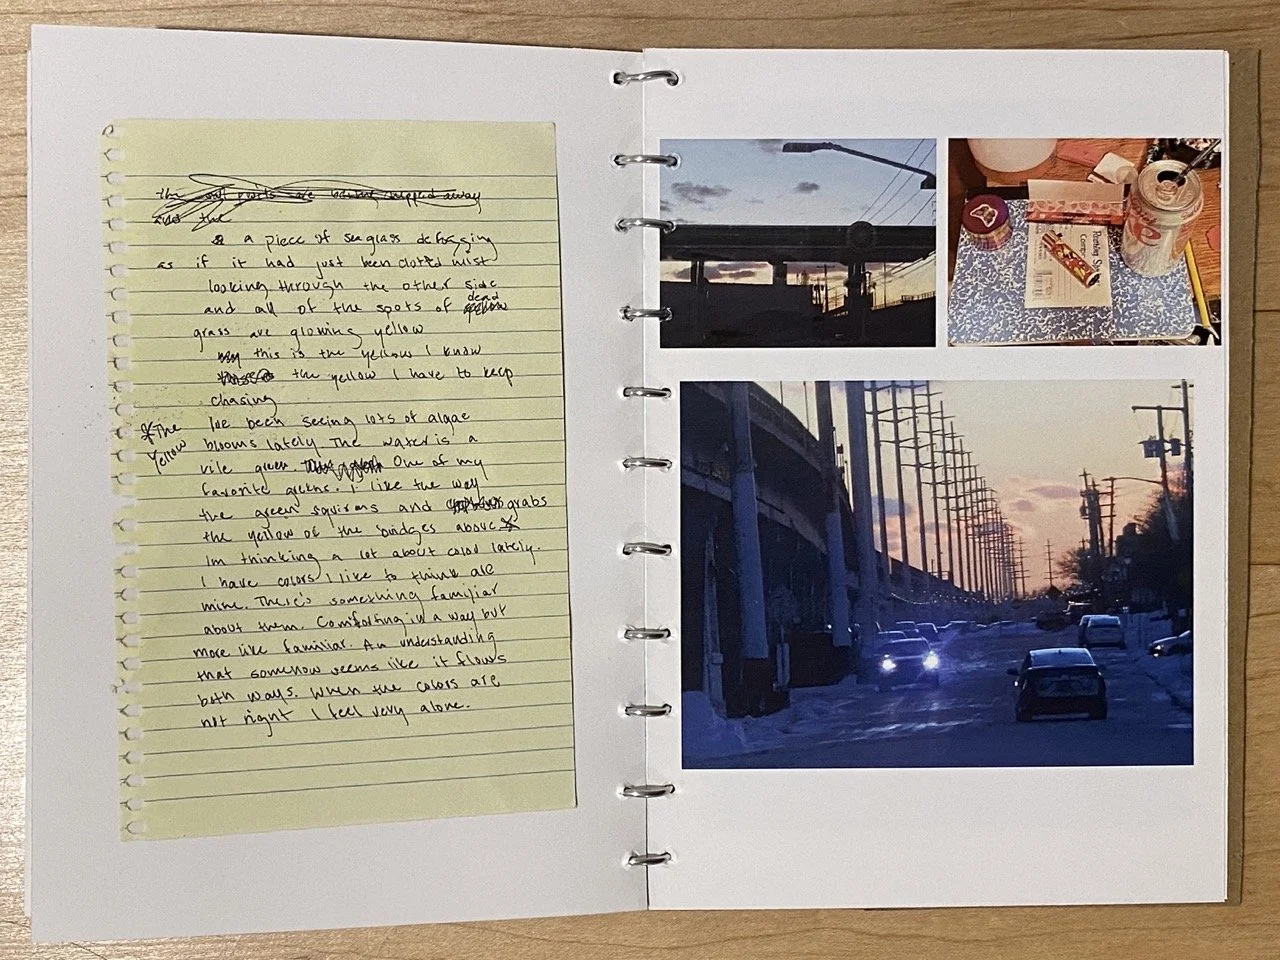 and the
a piece of sea glass defogging
as if it had just been clotted mist
looking through the other side
and all of the spots of dead
grass are glowing yellow
this is the yellow I know
the yellow I have to keep
chasing
*The Yellow
I've been seeing lots of algae
blooms lately The water is a
vile green. One of my
favorite greens. I like the way
the green squirms and grabs
the yellow of the bridges above
Im thinking a lot about color lately.
I have colors I like to think are
mine. There's something familiar
about them. Comforting in a way but
more like familiar. An understanding
that somehow seems like it flows
both ways. When the colors are
not right I feel very alone.